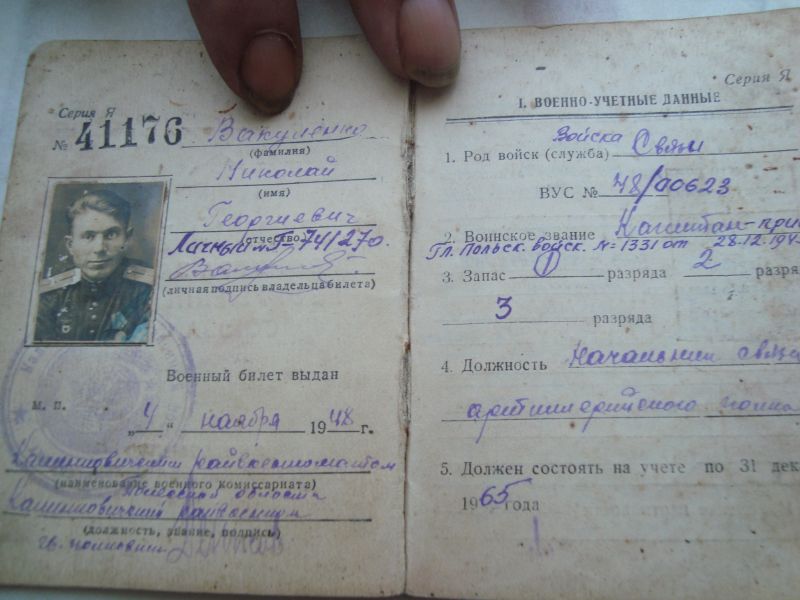 Серия Я
№ 41176
Вакуленко
(фамилия)
Николай
(имя)
Георгиевич
(отчество)
Личный № Г-741270.
(личная подпись владельца билета)
Военный билет выдан
М. П. „4“ ноября 1948 г.
Калинковичским райвоенкоматом
(наименование военного комиссариата)
Полесской области
Калинковичский райвоенком
(должность, звание, подпись)
Серия Я
I. ВОЕННО-УЧЕТНЫЕ ДАННЫЕ
Войска
1. Род войск (служба) Связи
ВУС № 78/00623
2. Воинское звание Капитан-при
Гл. Польск. Войск. №=1331 от 28.12.194
3. Запас 1 разряда 2 разря
3 разряда
4. Должность Начальник связи
артиллерийского полка
5. Должен состоять на учете по 31 дек
1965 года